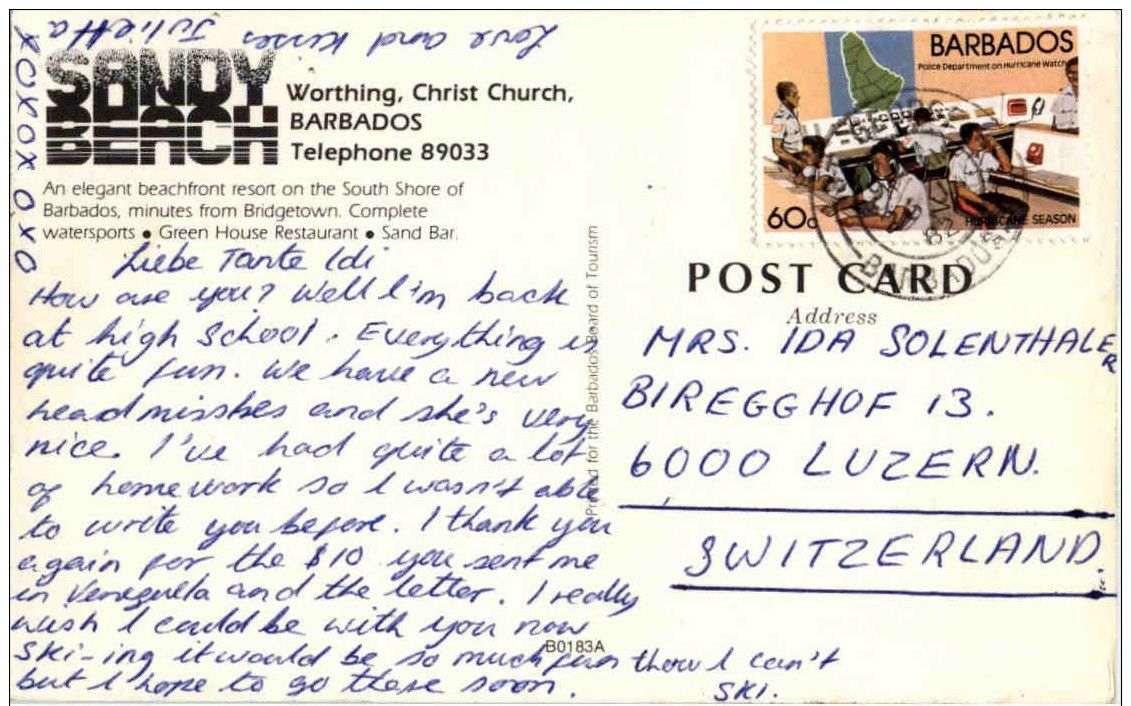 Love and kisses Julietta
XOXOXOXOXO
SANDY
BEACH
Worthing, Christ Church,
BARBADOS
Telephone 89033
An elegant beachfront resort on the South Shore of
Barbados, minutes from Bridgetown. Complete
watersports • Green House Restaurant • Sand Bar.
Liebe Tante Idi
How are you? Well I'm back
at high School. Everything is
quite fun. We have a new
headmissbes and she's very
nice. I've had quite a lot
of homework so I wasn't able
to write you before. I thank you
again for the $10 you sent me
in Venezuela and the letter. I really
wish I could be with you now
Ski-ing it would be so much fun thow I can't
ski.
but I hope to go there soon.
B0183A
Printed for the Barbados Board of Tourism
BARBADOS
Police Department on Hurricane Watch
60c
HURRICANE SEASON
82
BARBADOS
POST CARD
Address
MRS. IDA SOLENTHALER
BIREGGHOF 13.
6000 LUZERN.
SWITZERLAND.